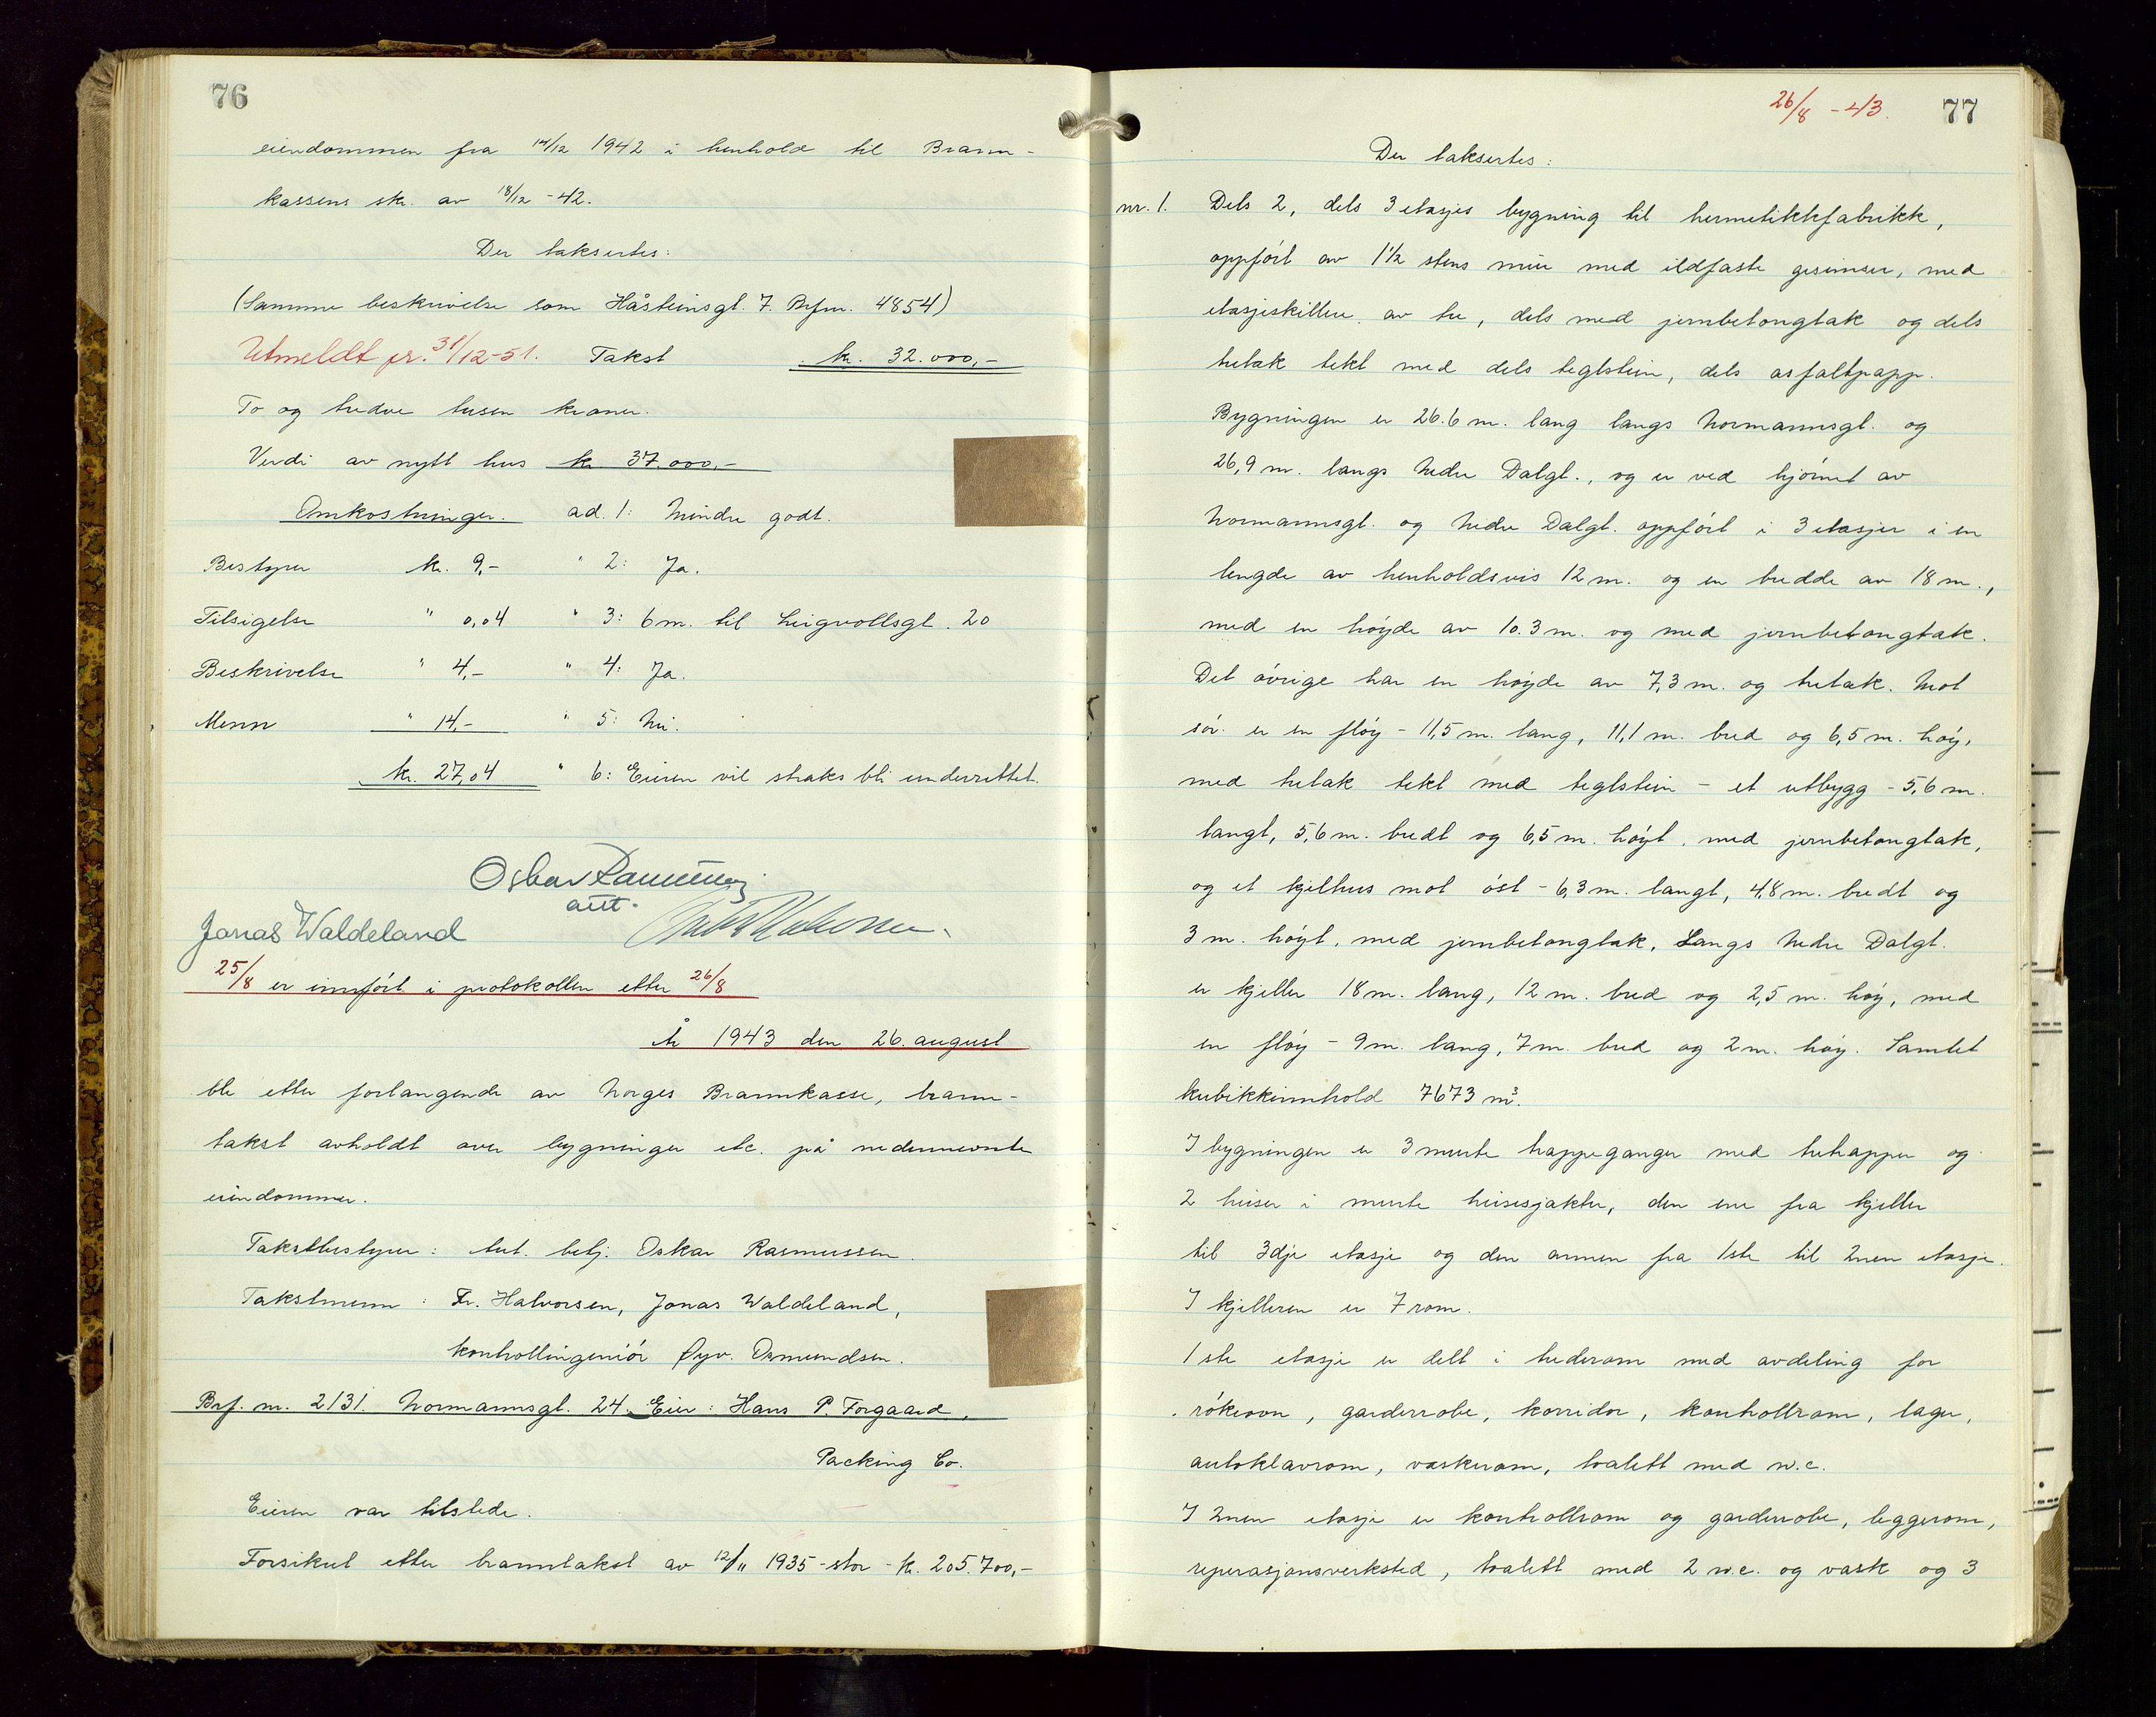 76
eiendommen fra 14/12 1942 i henhold til Brann-
kassens skr. av 18/12 -42.
Der taksertes:
(Samme beskrivelse som Håsteinsgt. 7. Brfnr. 4854)
Utmeldt fr. 31/12-51. Takst kr. 32.000,-
To og tredve tusen kroner.
Verdi av nytt hus kr 37.000,-
Omkostninger. ad. 1: Mindre godt.
Bestyrer kr. 9,- " 2: Ja.
Tilsigelse " 0,04 " 3: 6 m. til Leirvollsgt. 20
Beskrivelse " 4,- " 4: Ja.
Menn " 14,- " 5: Nei.
kr. 27,04 " 6: Eieren vil straks bli underrettet.
Oskar Rasmussen
aut.
Jonas Waldeland
25/8 er innført i protokollen etter 26/8
År 1943 den 26. august
ble etter forlangende av Norges Brannkasse, brann-
takst avholdt over bygninger etc. på nedennevnte
eiendommer.
Takstbestyrer: aut. betj. Oskar Rasmussen.
Takstmenn: Fr. Halvorsen, Jonas Waldeland,
kontrollingeniör Øyv. Osmundsen.
Brf. nr. 2131. Normannsgt. 24. Eier: Hans P. Forgaard,
Packing Co.
Eieren var tilstede.
Forsikret etter branntakst av 12/11 1935 - stor - kr. 205.700,-
26/8 -43. 77
Der taksertes:
nr. 1. Dels 2, dels 3 etasjes bygning til hermetikkfabrikk,
oppført av 1 1/2 stens mur med ildfaste gesimser, med
etasjeskillere av tre, dels med jernbetongtak og dels
tretak tekt med dels teglstein, dels asfaltpapp.
Bygningen er 26.6 m. lang langs Normannsgt. og
26,9 m. langs Nedre Dalgt., og er ved hjørnet av
Normannsgt. og Nedre Dalgt. oppført i 3 etasjer i en
lengde av henholdsvis 12 m. og en bredde av 18 m.,
med en høyde av 10.3 m. og med jernbetongtak.
Det övrige har en høyde av 7,3 m. og tretak. Mot
sør er en fløy - 11,5 m. lang, 11,1 m. bred og 6,5 m. høy,
med tretak tekt med teglstein - et utbygg - 5,6 m.
langt, 5,6 m. bredt og 6,5 m. høyt, med jernbetongtak,
og et kjelhus mot öst - 6,3 m. langt, 4,8 m. bredt og
3 m. høyt, med jernbetongtak. Langs Nedre Dalgt.
er kjeller 18 m. lang, 12 m. bred og 2,5 m. høy, med
en fløy - 9 m. lang, 7 m. bred og 2 m. høy. Samlet
kubikkinnhold 7673 m³.
I bygningen er 3 murte trappeganger med tretrapper og
2 heiser i murte heisesjakter, den ene fra kjeller
til 3dje etasje og den annen fra 1ste til 2nen etasje.
I kjelleren er 7 rom.
1ste etasje er delt i trederom med avdeling for
rökeovn, garderobe, korridor, kontrollrom, lager,
autoklavrom, vaskerom, toalett med w.c.
I 2nen etasje er kontrollrom og garderobe, leggerom,
reperasjonsverksted, toalett med 2 w.c. og vask og 3